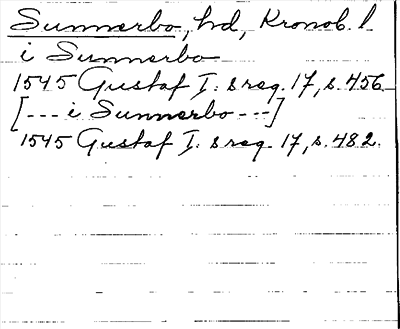 Sunnerbo, hd, Kronob. l
i Sunnerbo
1545 Gustaf I:s reg. 17, s. 456
[--- i Sunnerbo ---]
1545 Gustaf I:s reg. 17, s. 482.